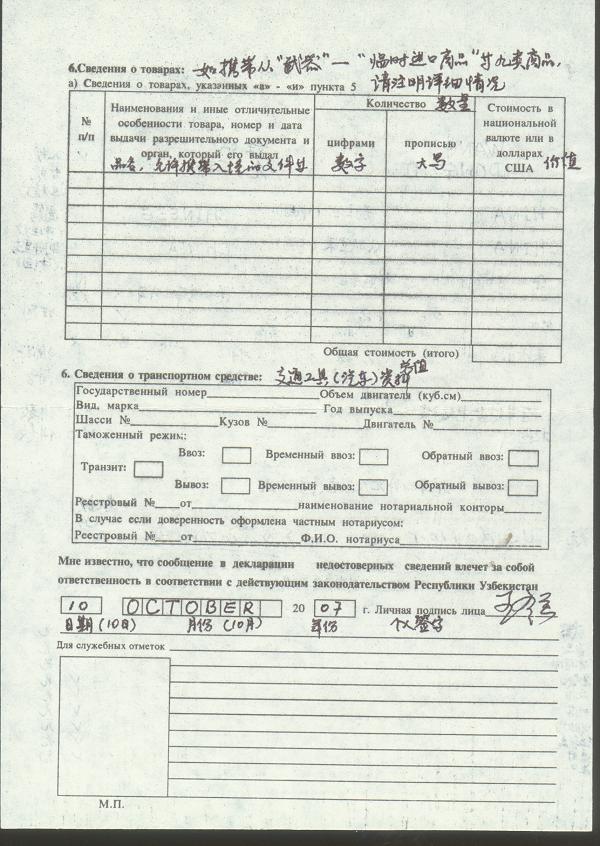 6.Сведения о товарах: 如携带从“武器”一“临时进口商品”等九类商品，
а) Сведения о товарах, указанных «а» - «и» пункта 5 请注明详细情况
№ п/п
Наименования и иные отличительные
особенности товара, номер и дата
выдачи разрешительного документа и
орган, который его выдал
品名，允许携带入境的文件号
Количество 数量
цифрами
数字
прописью
大写
Стоимость в
национальной
валюте или в
долларах
США 价值
Общая стоимость (итого)
总值
6. Сведения о транспортном средстве: 交通工具(汽车)资料
Государственный номер Объем двигателя (куб.см)
Вид, марка Год выпуска
Шасси № Кузов № Двигатель №
Таможенный режим:
Ввоз: Временный ввоз: Обратный ввоз:
Транзит:
Вывоз: Временный вывоз: Обратный вывоз:
Реестровый № от наименование нотариальной конторы
В случае если доверенность оформлена частным нотариусом:
Реестровый № от Ф.И.О. нотариуса
Мне известно, что сообщение в декларации недостоверных сведений влечет за собой
ответственность в соответствии с действующим законодательством Республики Узбекистан
10 OCTOBER 20 07 г. Личная подпись лица
日期(10日) 月份(10月) 年份 个人签字
Для служебных отметок
М.П.